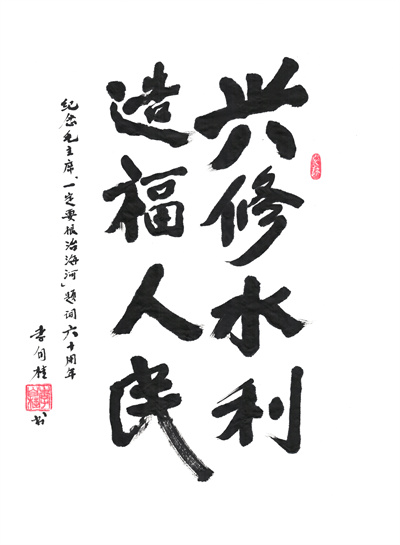 兴修水利
造福人民
纪念毛主席「一定要根治海河」题词六十周年